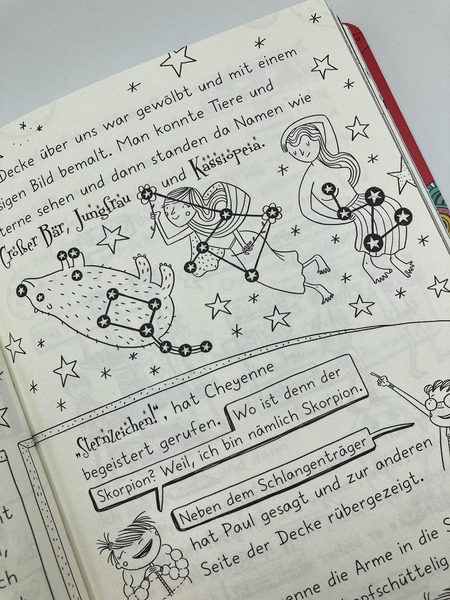 Decke über uns war gewölbt und mit einem
sigen Bild bemalt. Man konnte Tiere und
terne sehen und dann standen da Namen wie
Großer Bär, Jungfrau und Kassiopeia.
„Sternzeichen!“, hat Cheyenne
begeistert gerufen. Wo ist denn der
Skorpion? Weil, ich bin nämlich Skorpion.
Neben dem Schlangenträger
hat Paul gesagt und zur anderen
Seite der Decke rübergezeigt.
enne die Arme in die S
opfschüttelig